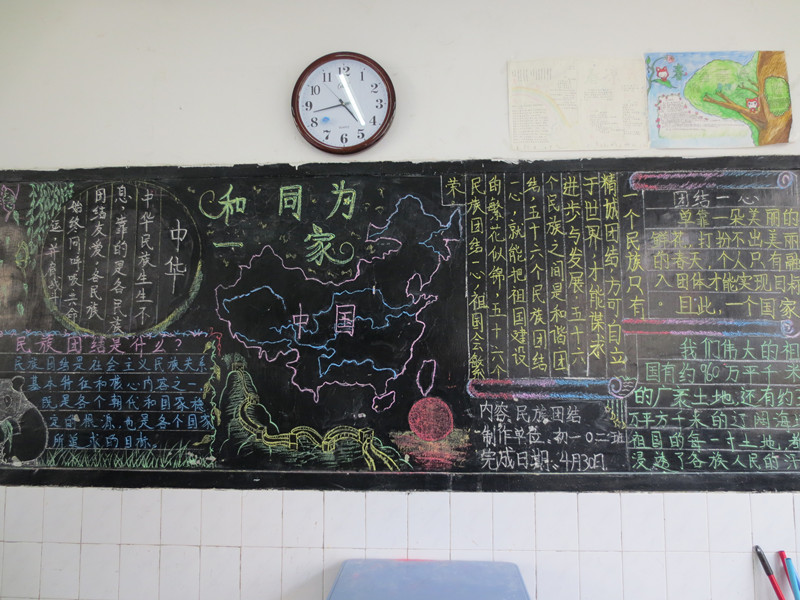 和同为
一家
中华
中华民族生生不
息，靠的是各民族
团结友爱，各民族
始终同呼吸共命
民族团结是什么？
民族团结是社会主义民族关系
基本特征和核心内容之一，
或是各个朝代和国家稳
定的根源，也是各个国家
所追求的目标．
中国
一个民族只有
精诚团结，方可自立
于世界，才能谋求
进步与发展，五十六
个民族之间是和谐团
结，五十六个民族团结
一心，就能把祖国建设
的繁花似锦，五十六个
民族团结一心，祖国会繁
荣
内容：民族团结
制作单位：初一〇二班
完成日期：4月30日
团结一心
单靠一朵美丽的
鲜花，打扮不出美丽
的春天，个人只有融
入团体才能实现目标
．且此，一个国家
我们伟大的祖
国有约960万平千米
的广袤土地，还有约
万平方千米的辽阔海
祖国的每一寸土地，都
浸透了各族人民的汗
12
1
2
3
4
5
6
7
8
9
10
11
QUARTZ